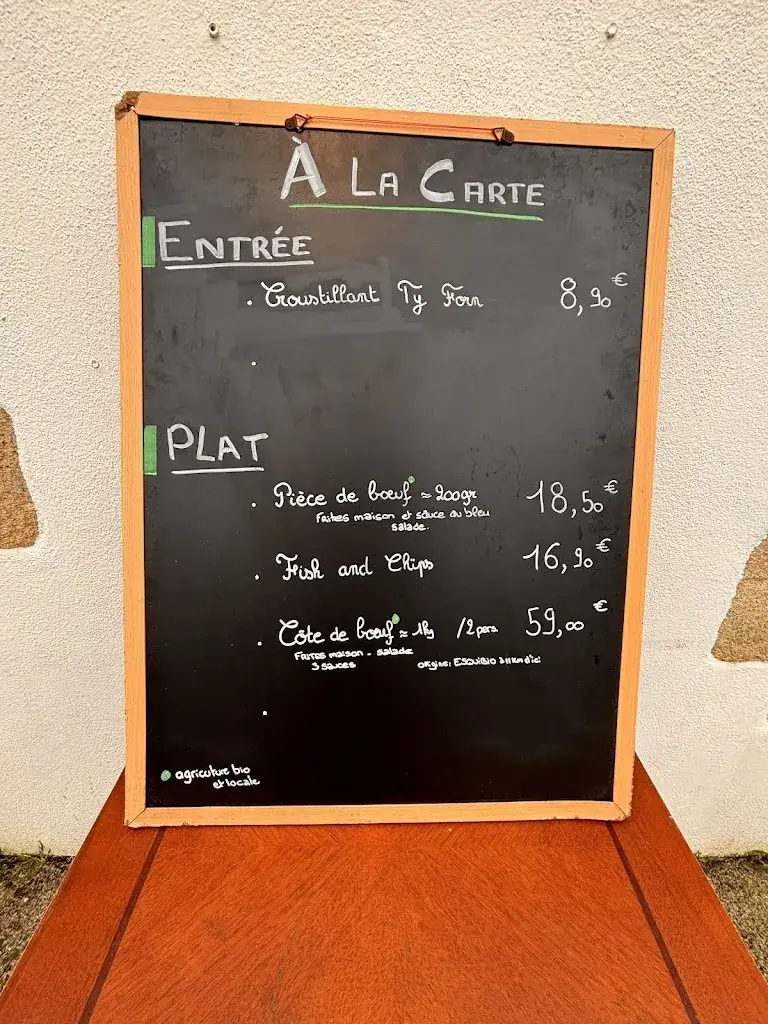 À LA CARTE
ENTRÉE
. Croustillant Ty Forn 8,90€
.
PLAT
. Pièce de bœuf ≈ 200gr 18,50€
Frites maison et sauce au bleu
salade.
. Fish and Chips 16,90€
. Côte de bœuf ≈ 1Kg /2 pers. 59,00€
Frites maison - salade
3 sauces origine: ESQUIBIO à 11Km d'ici
.
agriculture bio
et locale